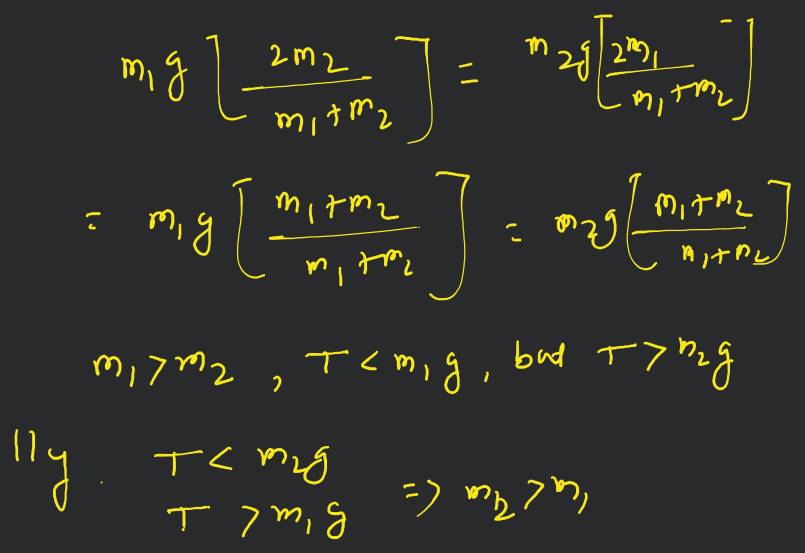 m₁g [ 2m₂ / m₁+m₂ ] = m₂g [ 2m₁ / m₁+m₂ ]
= m₁g [ m₁+m₂ / m₁+m₂ ] = m₂g [ m₁+m₂ / m₁+m₂ ]
m₁>m₂ , T<m₁g, but T>m₂g
llly. T< m₂g
T >m₁g => m₂>m₁